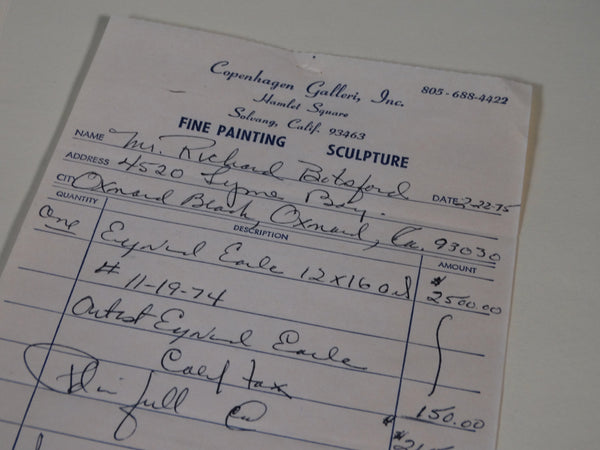 Copenhagen Galleri, Inc.
805-688-4422
Hamlet Square
Solvang, Calif. 93463
FINE PAINTING SCULPTURE
NAME Mr. Richard Botsford
ADDRESS 4520 Tyme Bay. DATE 2-22-75
CITY Oxnard Beach, Oxnard, Ca. 93030
QUANTITY DESCRIPTION AMOUNT
One Eyvind Earle 12x16 oil $2500.00
# 11-19-74
Artist Eyvind Earle
Calif tax 150.00
in full